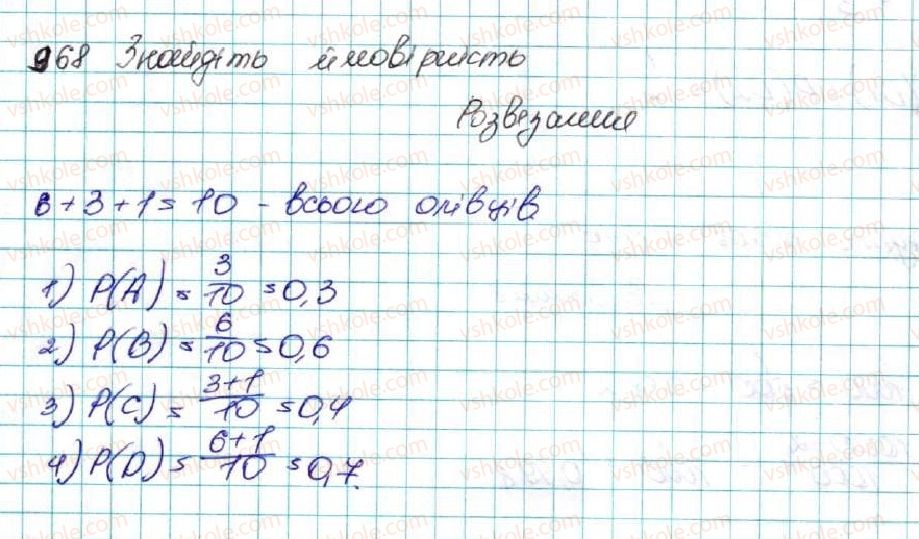 968 Знайдіть ймовірність
Розвезання
6+3+1=10 - всього олівців
1) P(A) = 3/10 = 0,3
2) P(B) = 6/10 = 0,6
3) P(C) = 3+1/10 = 0,4
4) P(D) = 6+1/10 = 0,7.
vshkole.com